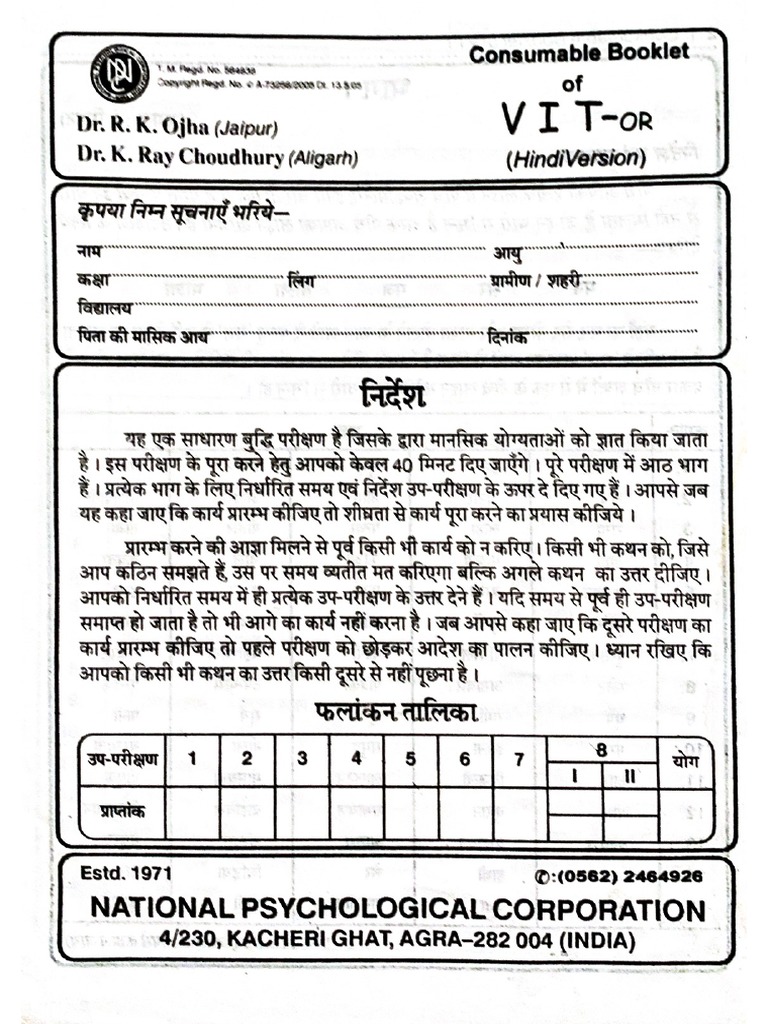 T. M. Regd. No. 564838
Copyright Regd. No. © A-73256/2005 Dt. 13.5.05
Dr. R. K. Ojha (Jaipur)
Dr. K. Ray Choudhury (Aligarh)
Consumable Booklet
of
V I T-OR
(HindiVersion)
कृपया निम्न सूचनाएँ भरिये—
नाम आयु
कक्षा लिंग ग्रामीण / शहरी
विद्यालय
पिता की मासिक आय दिनांक
निर्देश
यह एक साधारण बुद्धि परीक्षण है जिसके द्वारा मानसिक योग्यताओं को ज्ञात किया जाता
है । इस परीक्षण के पूरा करने हेतु आपको केवल 40 मिनट दिए जाएँगे । पूरे परीक्षण में आठ भाग
हैं । प्रत्येक भाग के लिए निर्धारित समय एवं निर्देश उप-परीक्षण के ऊपर दे दिए गए हैं । आपसे जब
यह कहा जाए कि कार्य प्रारम्भ कीजिए तो शीघ्रता से कार्य पूरा करने का प्रयास कीजिये ।
प्रारम्भ करने की आज्ञा मिलने से पूर्व किसी भी कार्य को न करिए । किसी भी कथन को, जिसे
आप कठिन समझते हैं, उस पर समय व्यतीत मत करिएगा बल्कि अगले कथन का उत्तर दीजिए ।
आपको निर्धारित समय में ही प्रत्येक उप-परीक्षण के उत्तर देने हैं । यदि समय से पूर्व ही उप-परीक्षण
समाप्त हो जाता है तो भी आगे का कार्य नहीं करना है । जब आपसे कहा जाए कि दूसरे परीक्षण का
कार्य प्रारम्भ कीजिए तो पहले परीक्षण को छोड़कर आदेश का पालन कीजिए । ध्यान रखिए कि
आपको किसी भी कथन का उत्तर किसी दूसरे से नहीं पूछना है ।
फलांकन तालिका
उप-परीक्षण 1 2 3 4 5 6 7 8 योग
I II
प्राप्तांक
Estd. 1971 ✆:(0562) 2464926
NATIONAL PSYCHOLOGICAL CORPORATION
4/230, KACHERI GHAT, AGRA–282 004 (INDIA)